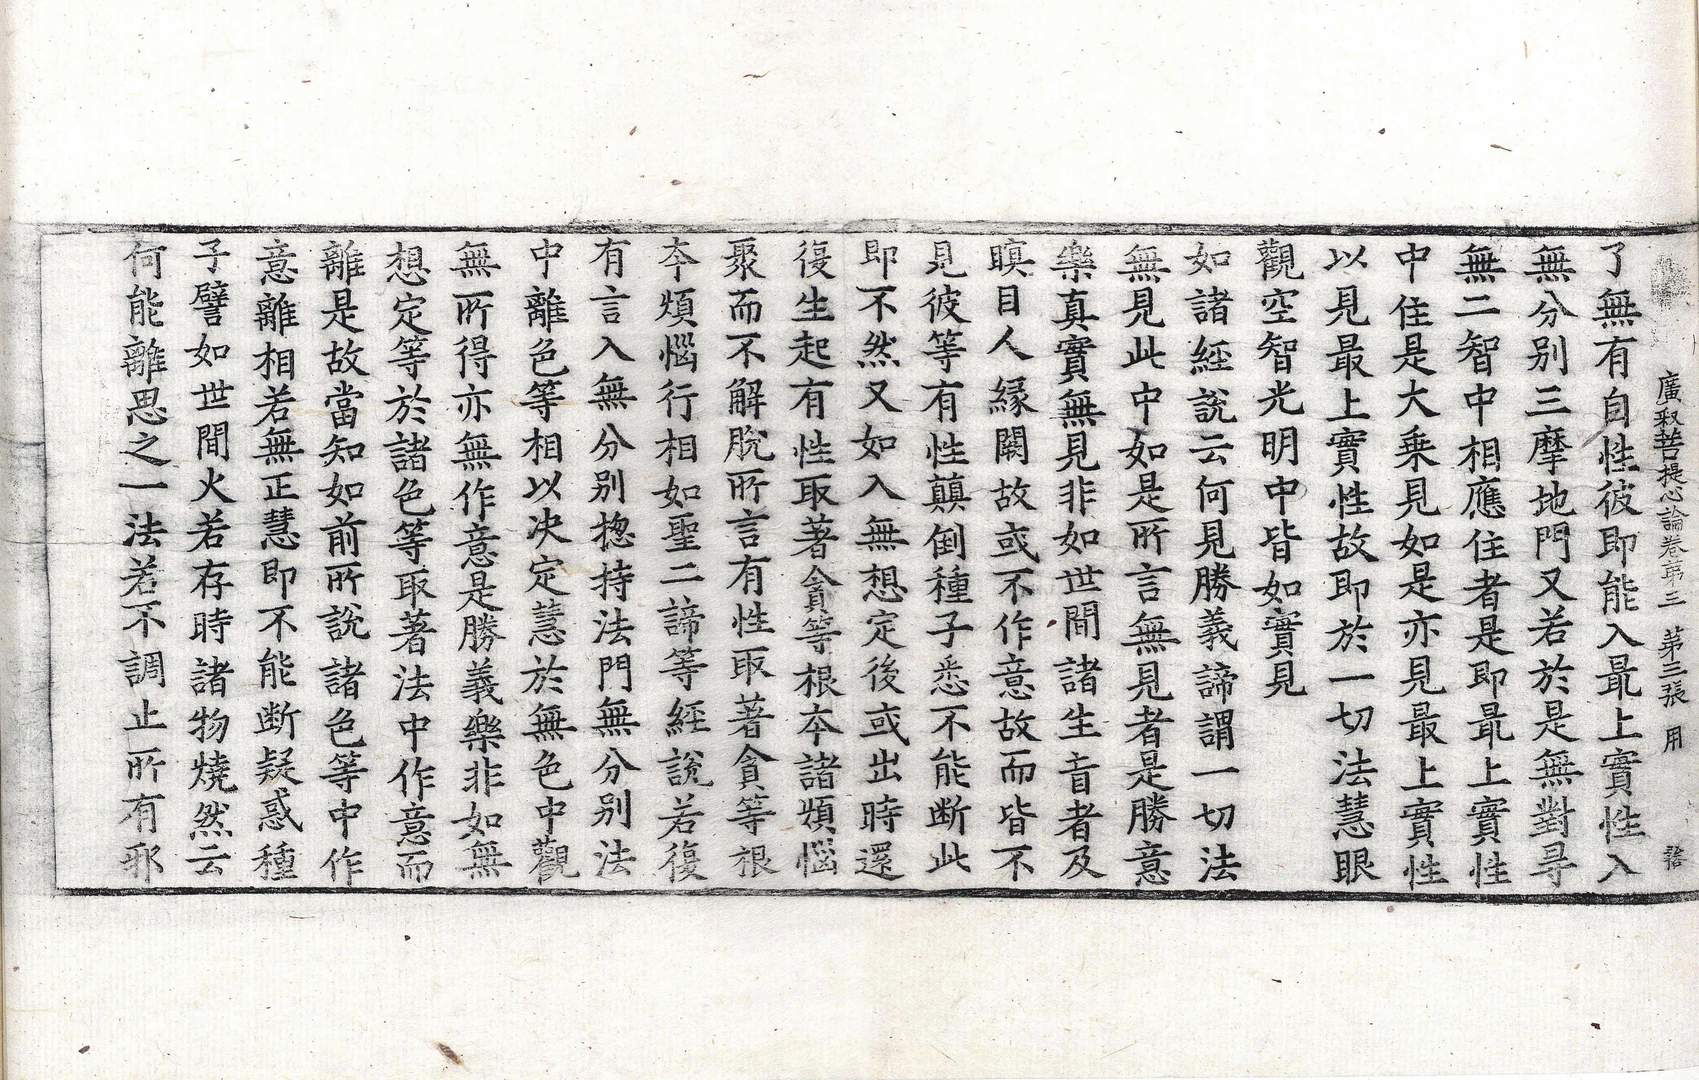 廣釈菩提心論卷苐三 苐三張 用
了無有自性彼即能入最上實性入
無分别三摩地門又若於是無對㝷
無二智中相應住者是即最上實性
中住是大乗見如是亦見最上實性
以見最上實性故即於一切法慧眼
觀空智光明中皆如實見
如諸經說云何見勝義諦謂一切法
無見此中如是所言無見者是勝意
樂真實無見非如世間諸生盲者及
瞑目人緣闕故或不作意故而皆不
見彼等有性顛倒種子悉不能断此
即不然又如入無想定後或出時還
復生起有性取著貪等根夲諸煩惱
聚而不解脫所言有性取著貪等根
夲煩惱行相如聖二諦等經說若復
有言入無分别揔持法門無分别法
中離色等相以决定慧於無色中觀
無所得亦無作意是勝義樂非如無
想定等於諸色等取著法中作意而
離是故當知如前所說諸色等中作
意離相若無正慧即不能断疑惑種
子譬如世間火若存時諸物燒然云
何能離思之一法若不調止所有邪